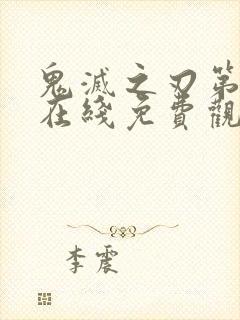 鬼滅之刃第
在綫免費觀
李震